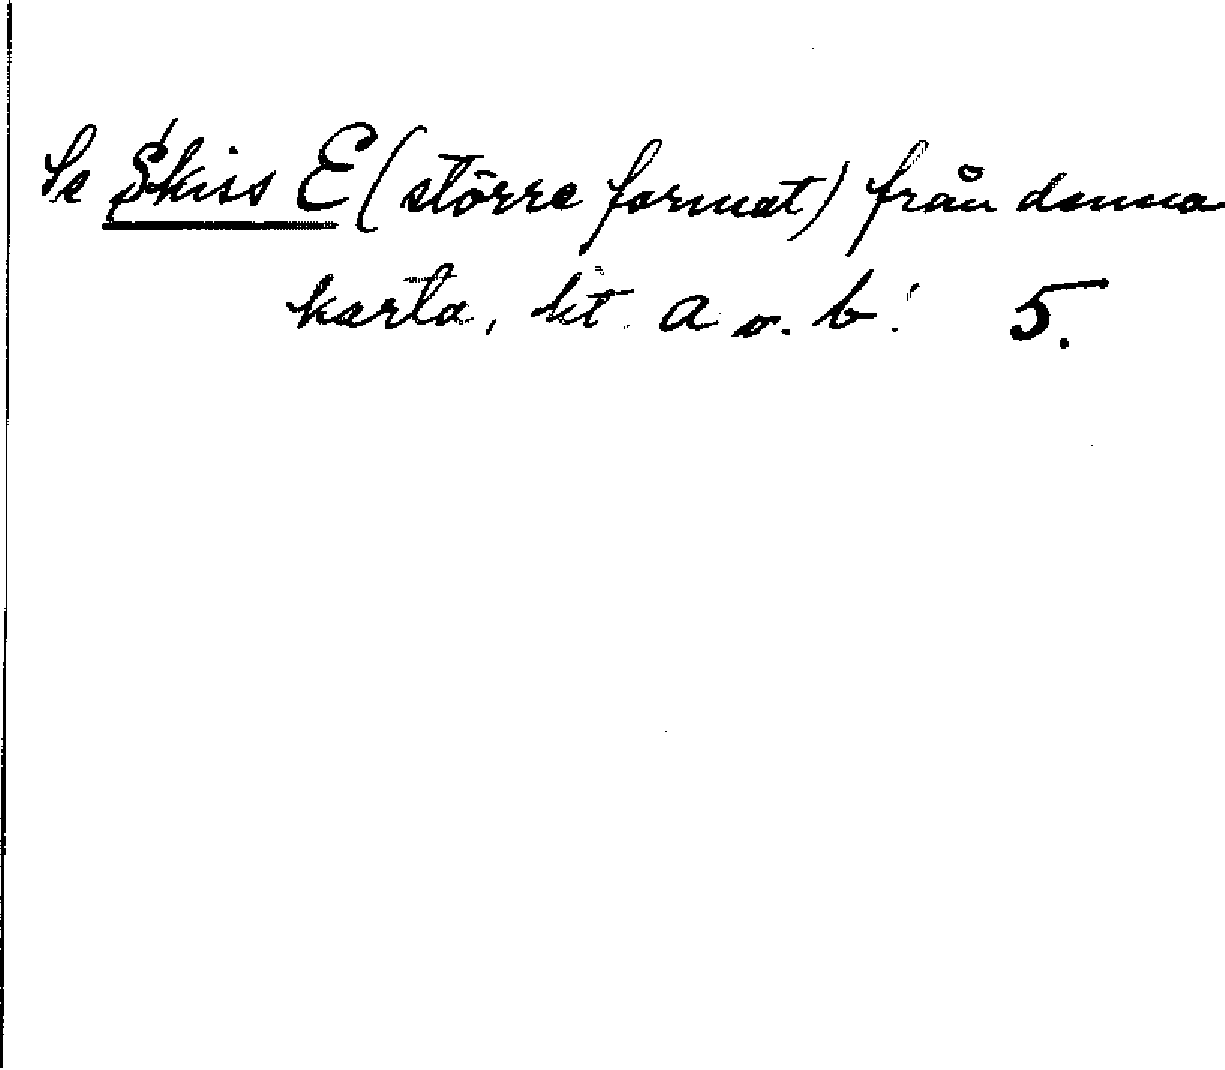 Se Skiss E (större format) från denna
karta, lit a o. b! 5.